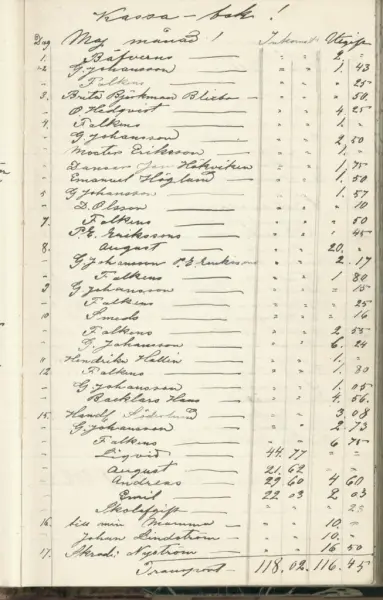 Kassa - bok!
Dag Maj månad! Inkomst Utgift
1. Bäfverns — " " 2. "
2 G. Johansson — " " 1. 43
- Falkens — " " " 25
3. Brita Björkman — " " " 50.
- O Hedqvist — " " 4 25
4. Falkens — " " 1. "
- G. Johansson — " " 2 50
- Morten Eriksson — " " 1. "
- Danson Håkviken " " 1. 75
- Emanuel Höglund — " " 1. 50
5 G Johansson — " " 1. 57
- D. Olsson — " " " 10
7. Falkens — " " " 50
- P. E. Erikssons — " " " 45
8. August — " " 20. "
- G Johansson P. E Eriksson " " 2. 17
- Falkens — " " 1 80
9 G Johansson — " " " 15
- Falkens — " " " 25
10 Smeds — " " " 16
- Falkens — " " 2 55
- G. Johansson — " " 6. 24
11 Hendrika Hallin — " " 1. "
12 Falkens — " " 1. 80
- G. Johansson — " " 1. 05
- Backlars Hans — " " 4. 56.
15. Handl Söderlund — " " 3. 08
- G. Johansson — " " 2. 73
- Falkens — " " 6 75
- Liqvid — 44. 77 " "
- August — 21. 62 " "
- Andreas — 29 60 4 60
- Emil — 22 03 2 03
- Skolafgift — " " "
16. till min Mamma — " " 10. "
- Johan Lindström — " " 10. "
17. Skrädd: Nyström — " " 16 50
Transport 118. 02. 116. 45